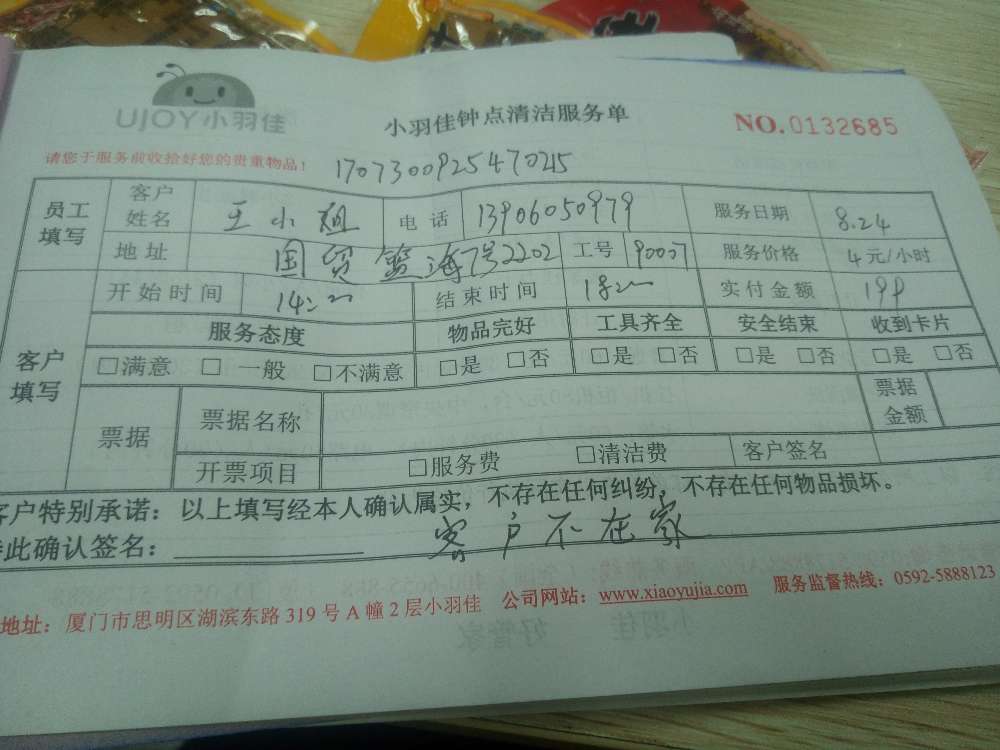 UJOY小羽佳
小羽佳钟点清洁服务单
NO.0132685
请您于服务前收拾好您的贵重物品!
员工填写 客户姓名 王小姐 电话 13906050979 服务日期 8.24
地址 国贸蓝海7号2202 工号 服务价格 4元/小时
客户填写 开始时间 14:00 结束时间 18:00 实付金额
服务态度 物品完好 工具齐全 安全结束 收到卡片
□满意 □一般 □不满意 □是 □否 □是 □否 □是 □否 □是 □否
票据 票据名称 票据金额
开票项目 □服务费 □清洁费 客户签名
客户特别承诺：以上填写经本人确认属实，不存在任何纠纷，不存在任何物品损坏。
此确认签名： 客户不在家
地址：厦门市思明区湖滨东路319号A幢2层小羽佳 公司网站：www.xiaoyujia.com 服务监督热线：0592-5888123